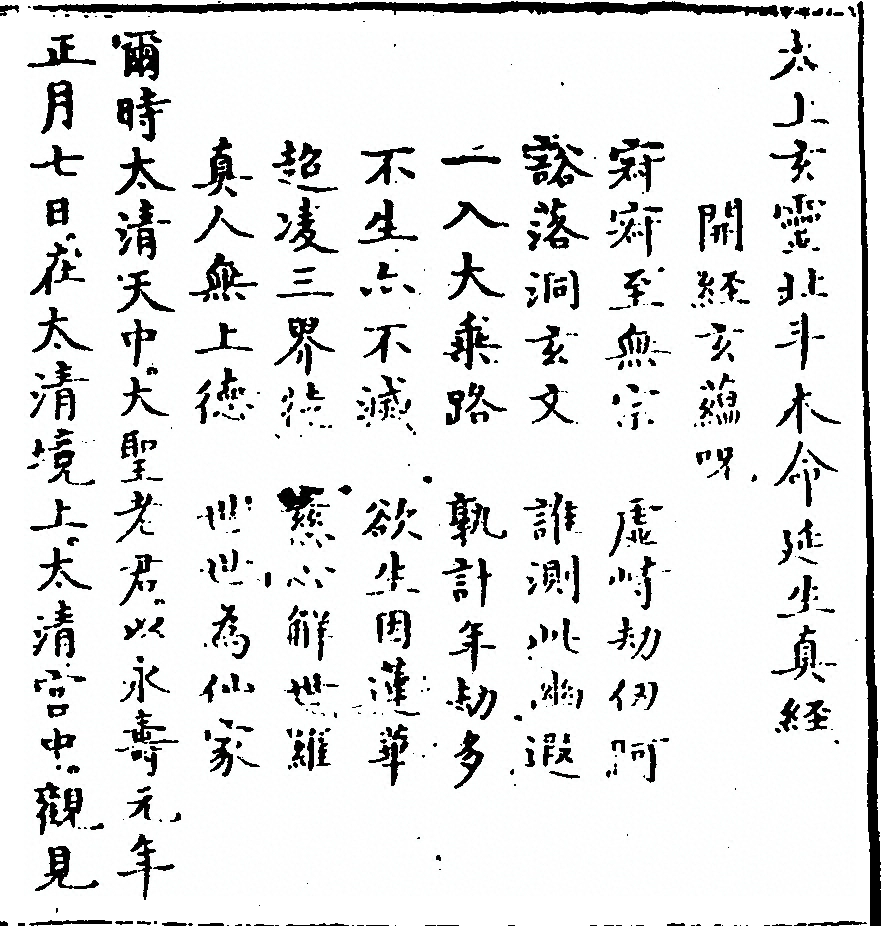 太上玄靈北斗本命延生真經
開經玄蘊呪
寂寂至無宗 虛峙劫仞阿
豁落洞玄文 誰測此幽遐
一入大乘路 孰計年劫多
不生亦不滅 欲生因蓮華
超凌三界徒 慈心解世羅
真人無上德 世世為仙家
爾時太清天中大聖老君以永壽元年
正月七日在太清境上太清宮中觀見